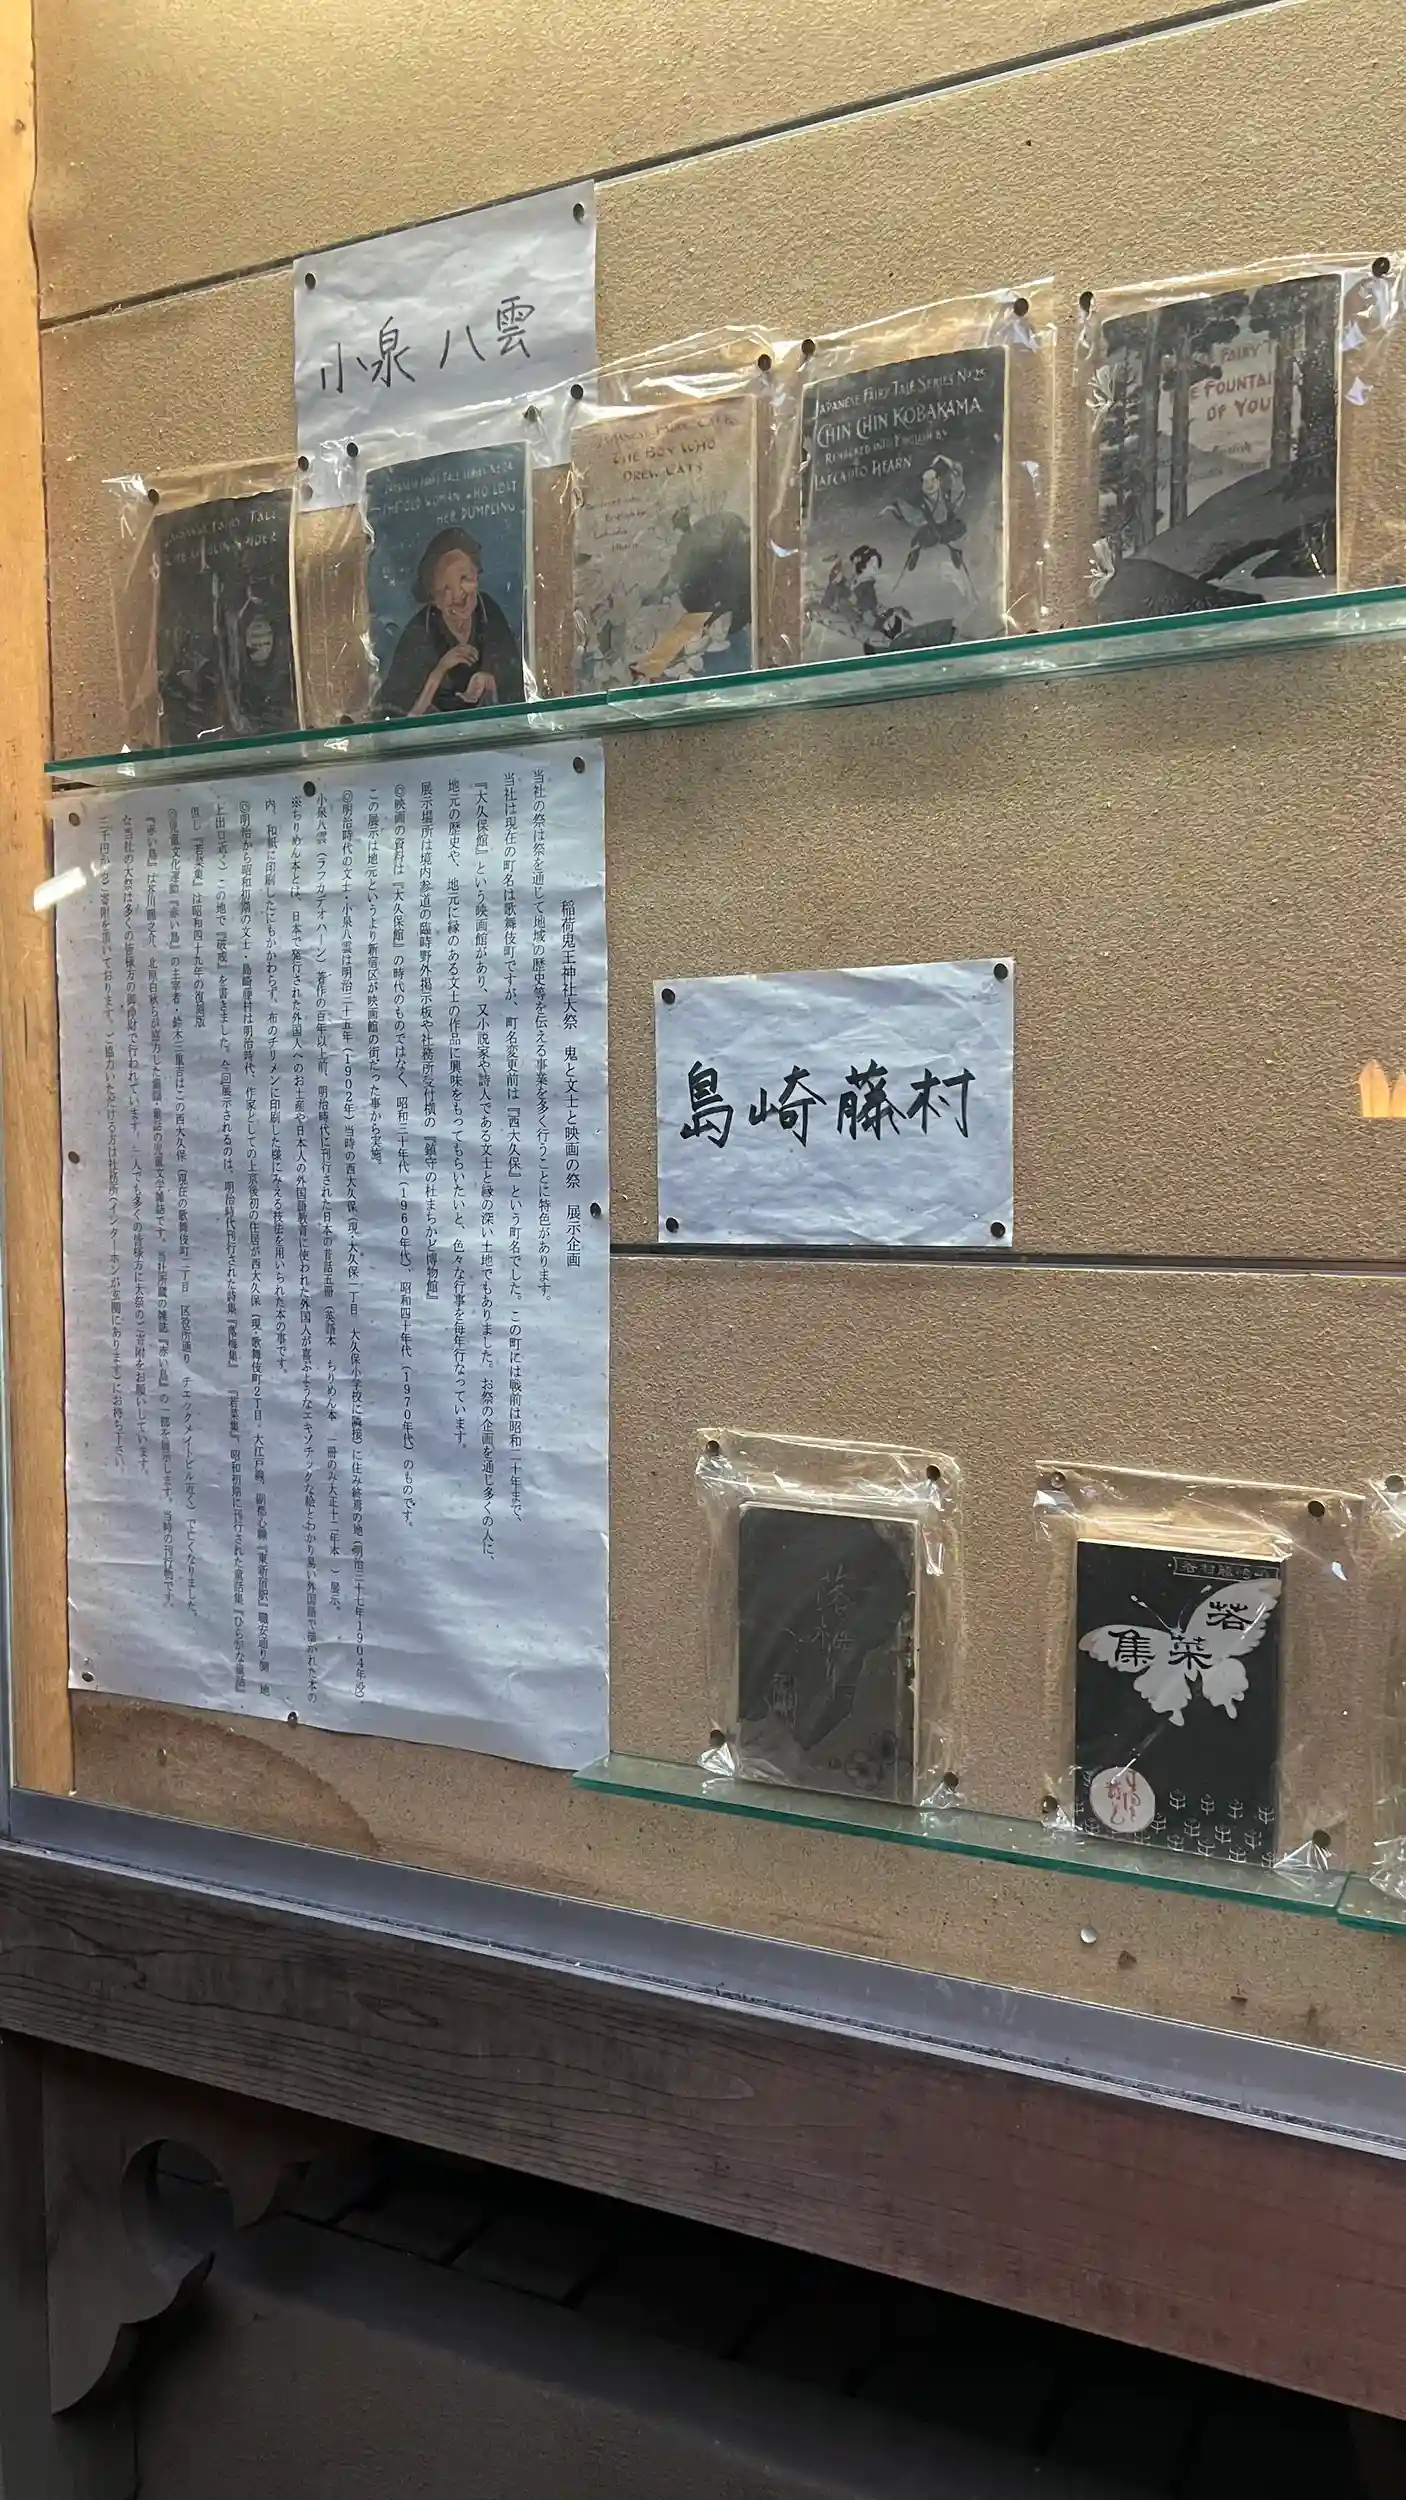 小泉 八雲
JAPANESE FAIRY TALE
THE GOBLIN SPIDER
JAPANESE FAIRY TALE
THE OLD WOMAN WHO LOST
HER DUMPLING
THE BOY WHO
DREW CATS
JAPANESE FAIRY TALE SERIES No 25
CHIN CHIN KOBAKAMA
RENDERED INTO ENGLISH BY
LAFCADIO HEARN
FAIRY T
E FOUNTAI
OF YOU
稲荷鬼王神社大祭 鬼と文士と映画の祭 展示企画
当社の祭は祭を通じて地域の歴史等を伝える事業を多く行うことに特色があります。
当社は現在の町名は歌舞伎町ですが、町名変更前は『西大久保』という町名でした。この町には戦前は昭和二十年まで、
『大久保館』という映画館があり、又小説家や詩人である文士と縁の深い土地でもありました。お祭の企画を通じ多くの人に、
地元の歴史や、地元に縁のある文士の作品に興味をもってもらいたいと、色々な行事を毎年行なっています。
展示場所は境内参道の臨時野外掲示板や社務所受付横の『鎮守の杜まちかど博物館』
◎映画の資料は『大久保館』の時代のものではなく、昭和三十年代(1960年代)、昭和四十年代(1970年代)のものです。
この展示は地元というより新宿区が映画館の街だった事から実施。
◎明治時代の文士・小泉八雲は明治三十五年(1902年)当時の西大久保(現・大久保一丁目 大久保小学校に隣接)に住み終焉の地(明治三十七年1904年没)。
小泉八雲(ラフカディオハーン)著作の百年以上前、明治時代に刊行された日本の昔話五冊(英語本 ちりめん本 一冊のみ大正十二年本)展示。
※ちりめん本とは、日本で発行された外国人へのお土産や日本人の外国語教育に使われた外国人が喜ぶようなエキゾチックな絵とわかり易い外国語で描かれた本の
内、和紙に印刷したにもかかわらず、布のチリメンに印刷した様にみえる技法を用いられた本の事です。
◎明治から昭和初期の文士・島崎藤村は明治時代、作家としての上京後初の住居が西大久保(現・歌舞伎町2丁目。大江戸線、副都心線『東新宿駅』職安通り側 地
上出口近く)この地で『破戒』を書きました。今回展示されるのは、明治時代刊行された詩集『落梅集』『若菜集』、昭和初期に刊行された童話集『ひらがな童話』
但し『若菜集』は昭和四十九年の復刻版
◎児童文化運動『赤い鳥』の主宰者・鈴木三重吉はこの西大久保(現在の歌舞伎町二丁目 区役所通り チェックメイトビル近く)で亡くなりました。
『赤い鳥』は芥川龍之介、北原白秋らが協力した童謡・童話の児童文学雑誌です。当社所蔵の雑誌『赤い鳥』の一部を展示します。当時の刊行物です。
☆当社の大祭は多くの皆様方の御浄財で行われています。一人でも多くの皆様方に大祭のご寄附をお願いしています。
三千円からご寄附を頂いております。ご協力いただける方は社務所(インターホンが玄関にあります)にお持ち下さい。
島崎藤村
落梅集
若菜集